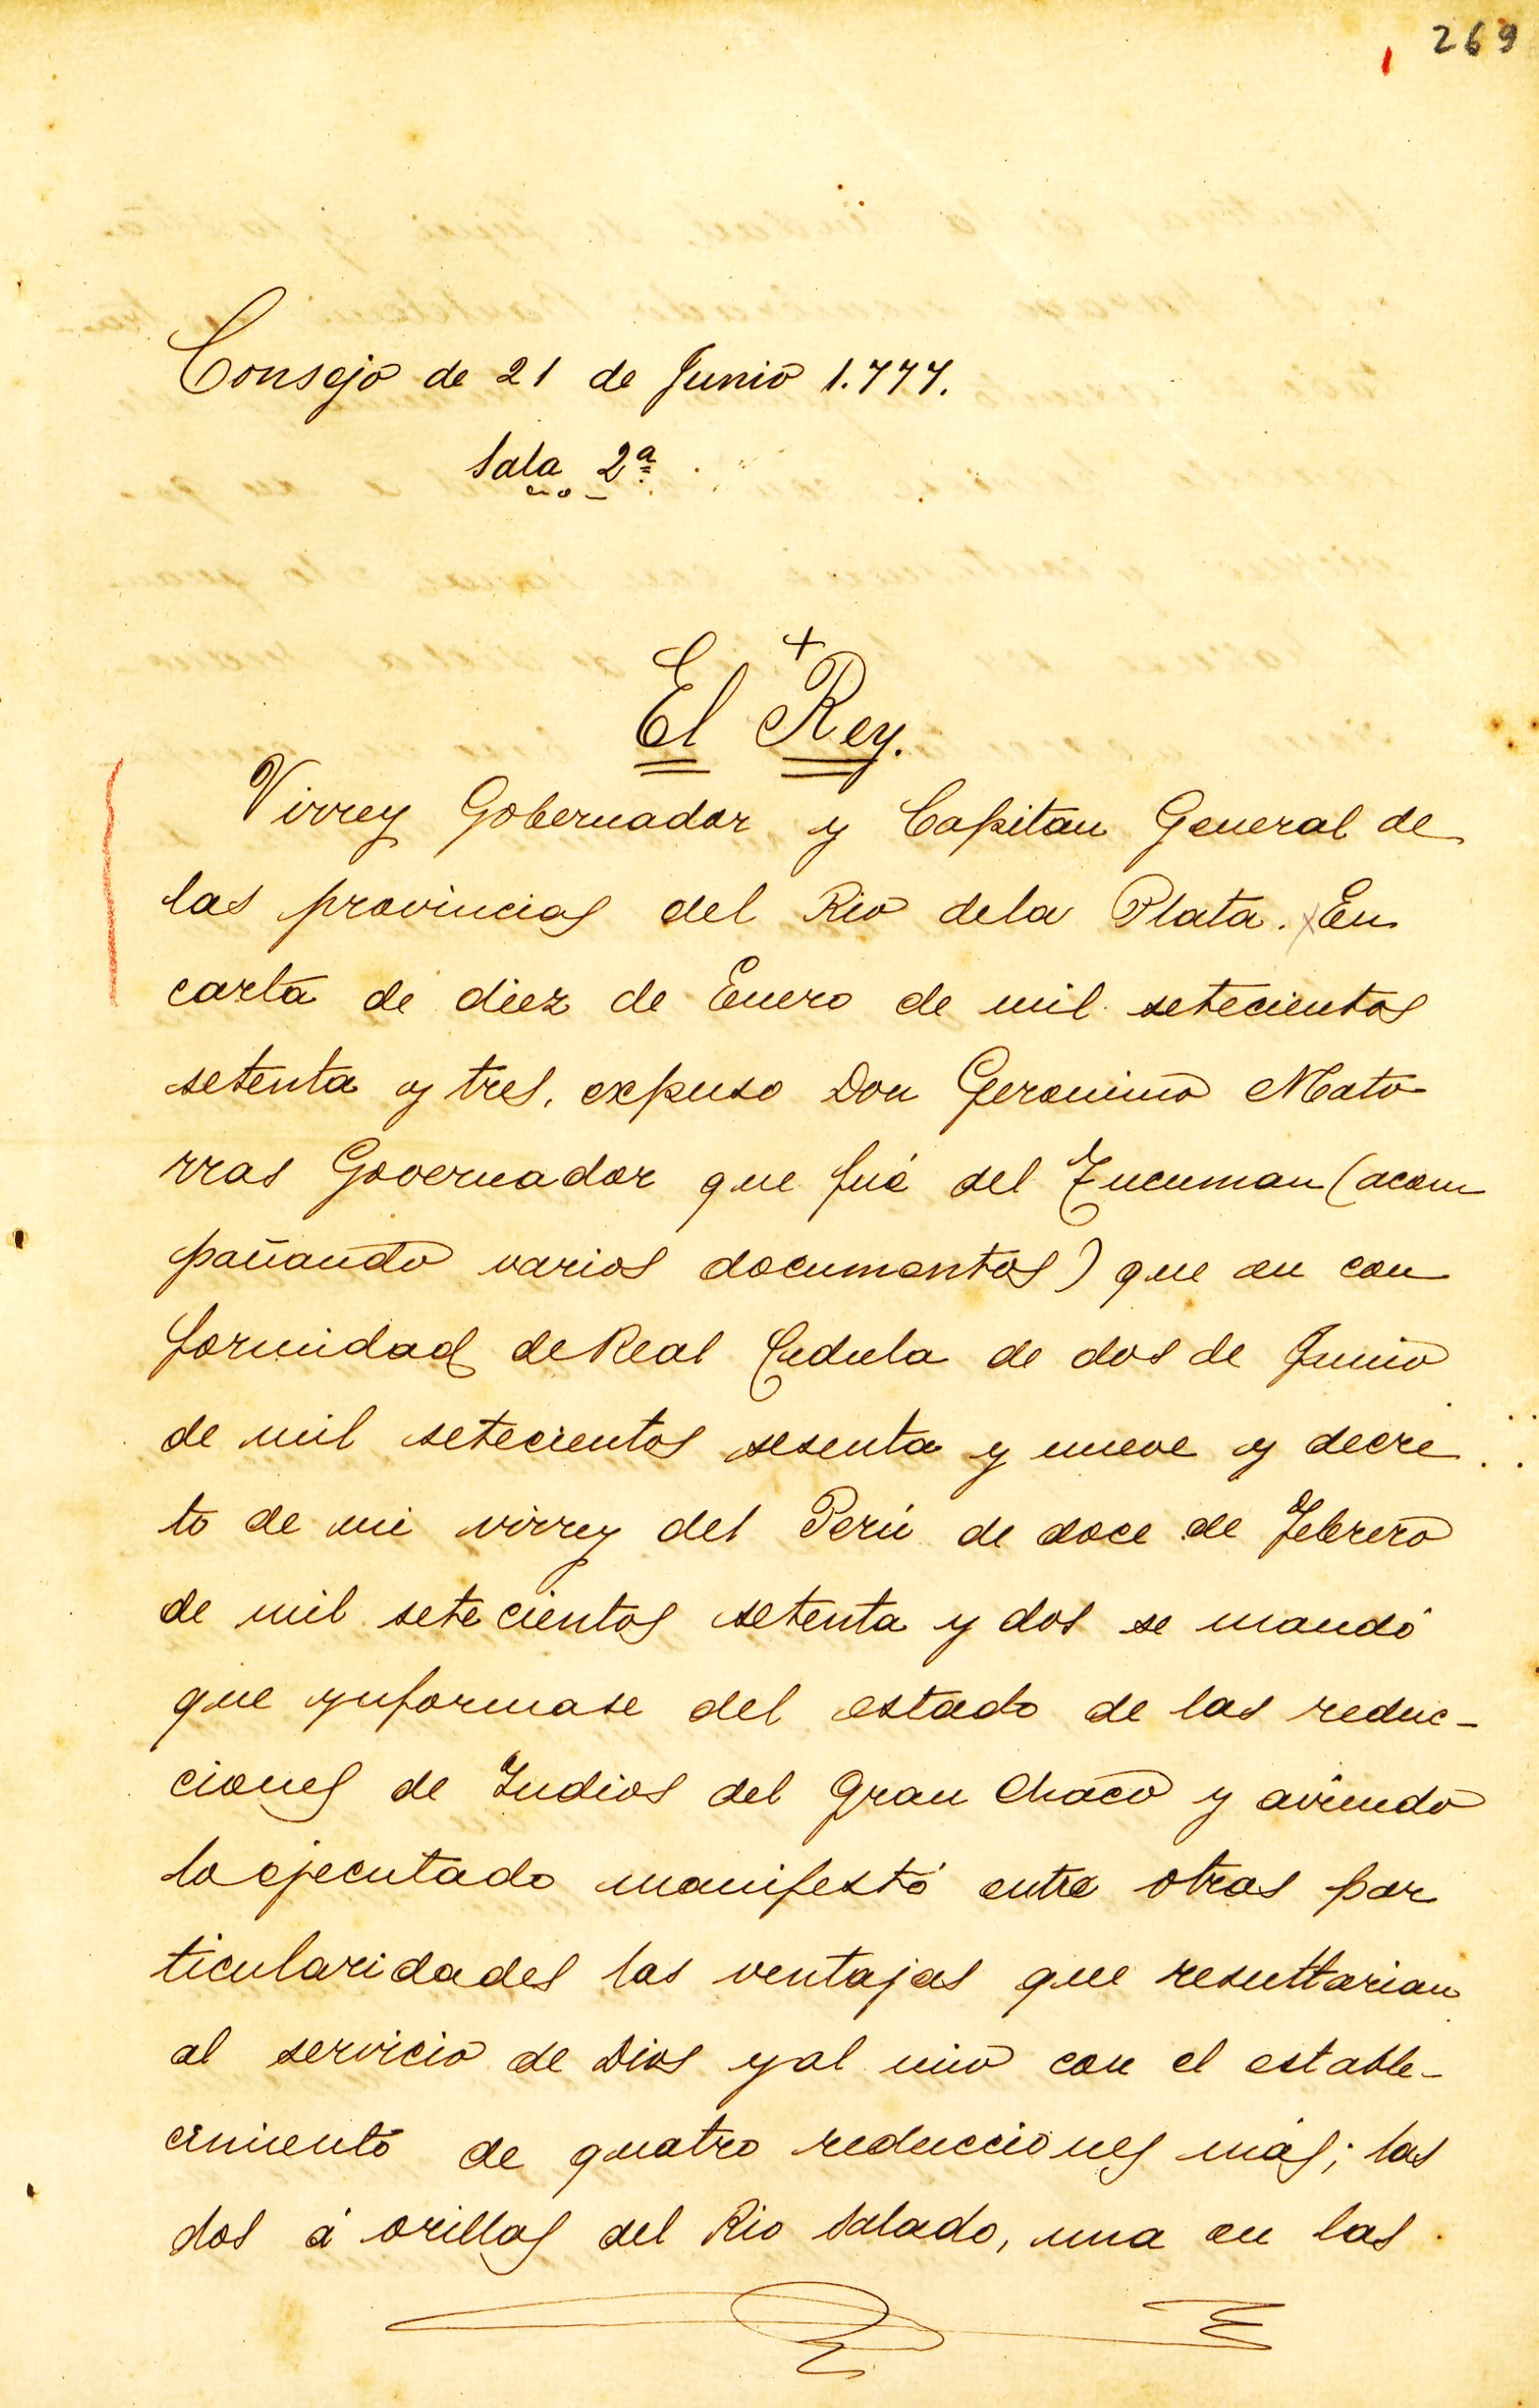 269
Consejo de 21 de Junio 1.777.
Sala 2ª
+
El Rey.
Virrey Gobernador y Capitan General de
las provincias del Rio dela Plata. En
carta de diez de Enero de mil setecientos
setenta y tres, expuso Don Geronimo Mato
rras Governador que fué del Tucuman (acom
pañando varios documentos) que en con
formidad de Real Cedula de dos de Junio
de mil setecientos sesenta y nueve y decre
to de mi virrey del Perú de doce de Febrero
de mil setecientos setenta y dos se mandó
que ynformase del estado de las reduc-
ciones de Indios del Gran Chaco y aviendo
lo ejecutado manifestó entre otras par
ticularidades las ventajas que resultarian
al servicio de Dios y al mio con el estable-
cimiento de quatro reducciones más; las
dos á orillas del Rio Salado, una en las